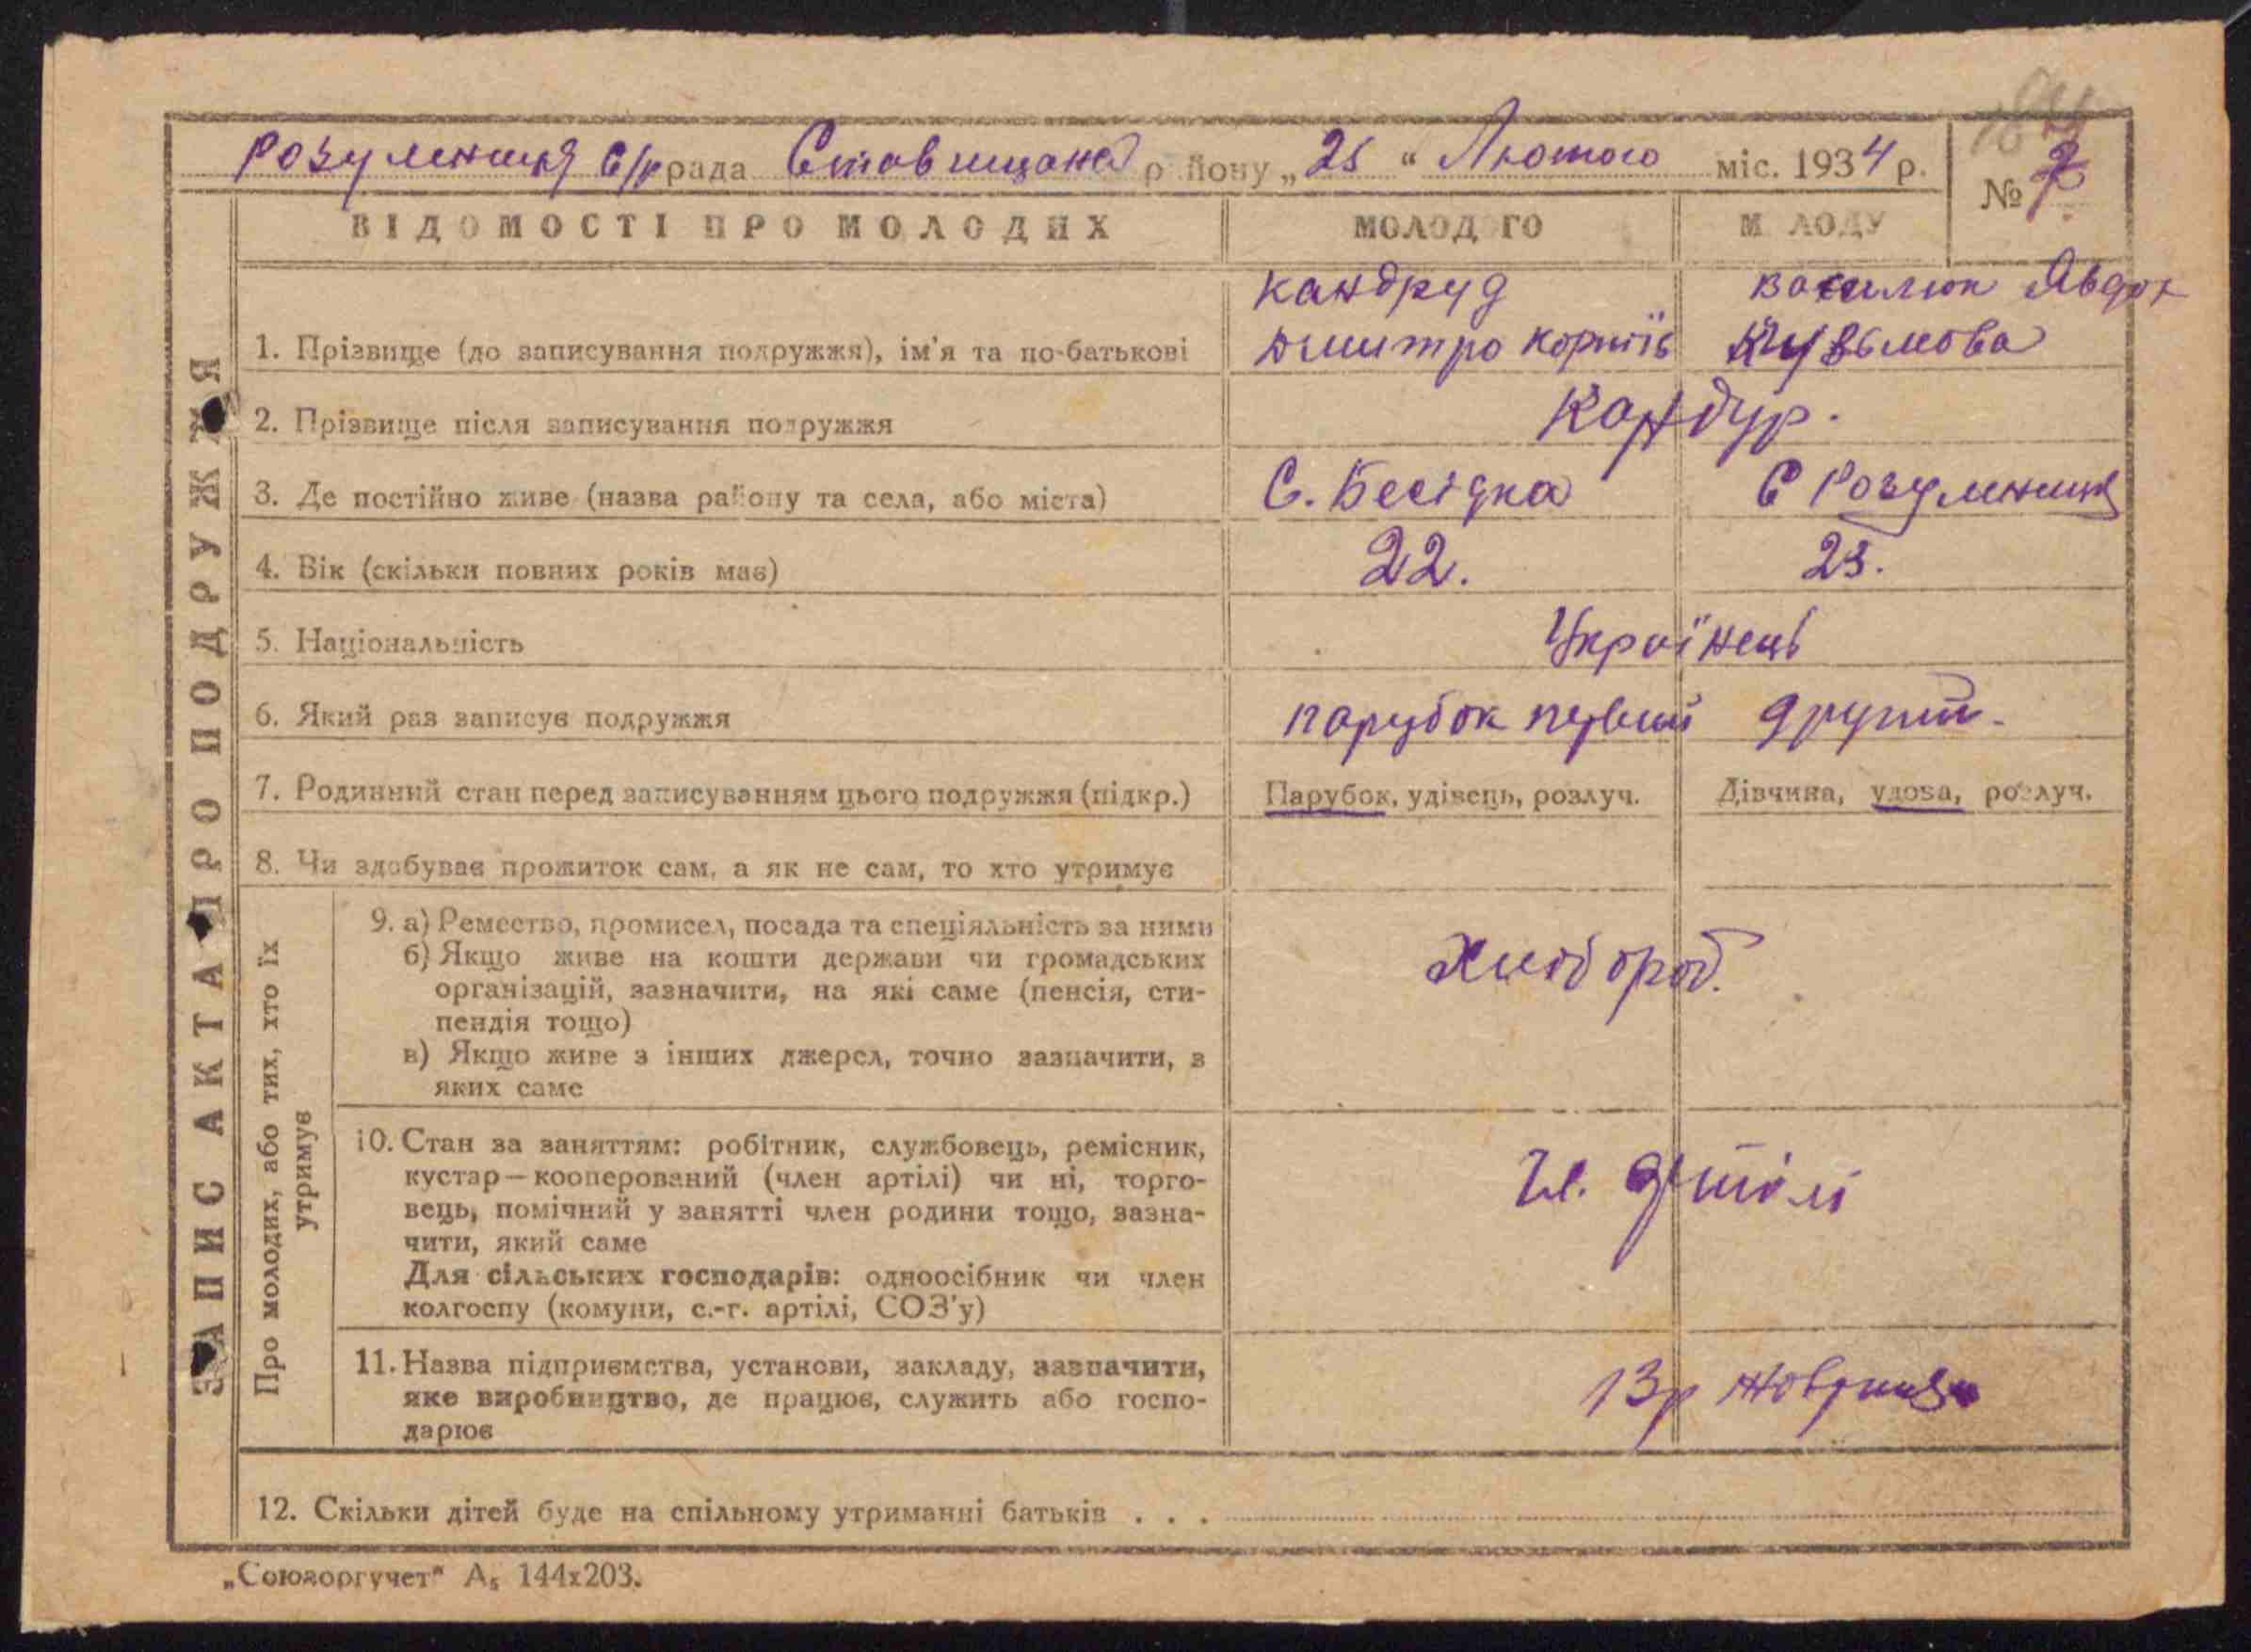 Розумниця С/р рада Ставищанс району „25 “ Лютого міс. 1934 р.
№ 7
ВІДОМОСТІ ПРО МОЛОДИХ
МОЛОДОГО
МОЛОДУ
ЗАПИС АКТА ПРО ПОДРУЖЖЯ
1. Прізвище (до записування подружжя), ім'я та по-батькові
Дмитро Корніїв
Василюк Явдох
Кузьмова
2. Прізвище після записування подружжя
Кандур.
3. Де постійно живе (назва району та села, або міста)
С. Бесідка
С Розумниця
4. Вік (скільки повних років має)
22.
23.
5. Національність
Українець
6. Який раз записує подружжя
парубок первий
другий.
7. Родинний стан перед записуванням цього подружжя (підкр.)
Парубок, удівець, розлуч.
Дівчина, удова, розлуч.
8. Чи здобуває прожиток сам, а як не сам, то хто утримує
Про молодих, або тих, хто їх
утримує
9. а) Ремество, промисел, посада та спеціяльність за ними
б) Якщо живе на кошти держави чи громадських
організацій, зазначити, на які саме (пенсія, сти-
пендія тощо)
в) Якщо живе з інших джерел, точно зазначити, з
яких саме
Хлібороб.
10. Стан за заняттям: робітник, службовець, ремісник,
кустар—кооперований (член артілі) чи ні, торго-
вець, помічний у занятті член родини тощо, зазна-
чити, який саме
Для сільських господарів: одноосібник чи член
колгоспу (комуни, с.-г. артілі, СОЗ'у)
Чл. артілі
11. Назва підприємства, установи, закладу, зазначити,
яке виробництво, де працює, служить або госпо-
дарює
13р
12. Скільки дітей буде на спільному утриманні батьків . . .
„Союзоргучет" А₅ 144х203.